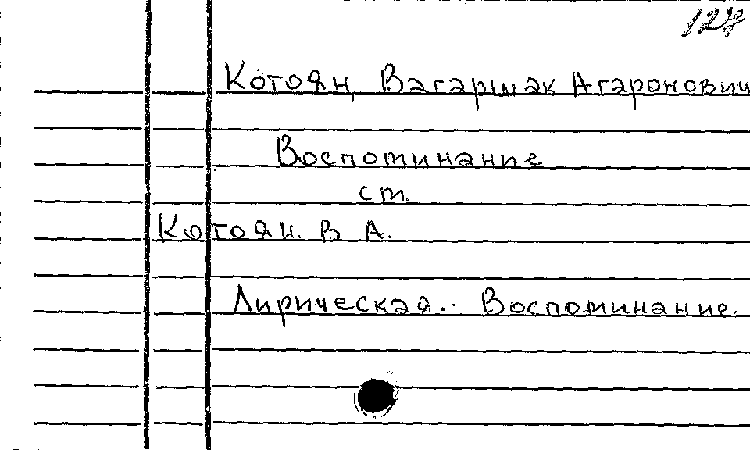 127
Котоян, Вагаршак Агаронович
Воспоминание
ст.
Котоян. В А.
Лирическая.. Воспоминание.